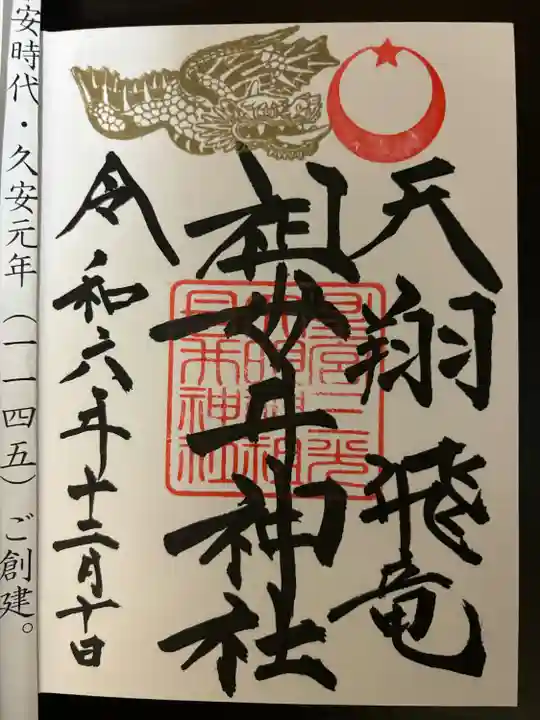 天翔飛竜
祖母井神社
令和六年十二月十日
安時代・久安元年(一一四五) ご創建。